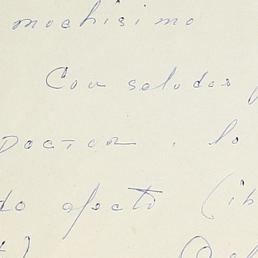 mochisimo
Con saludos
Doctor , lo
do afecto (